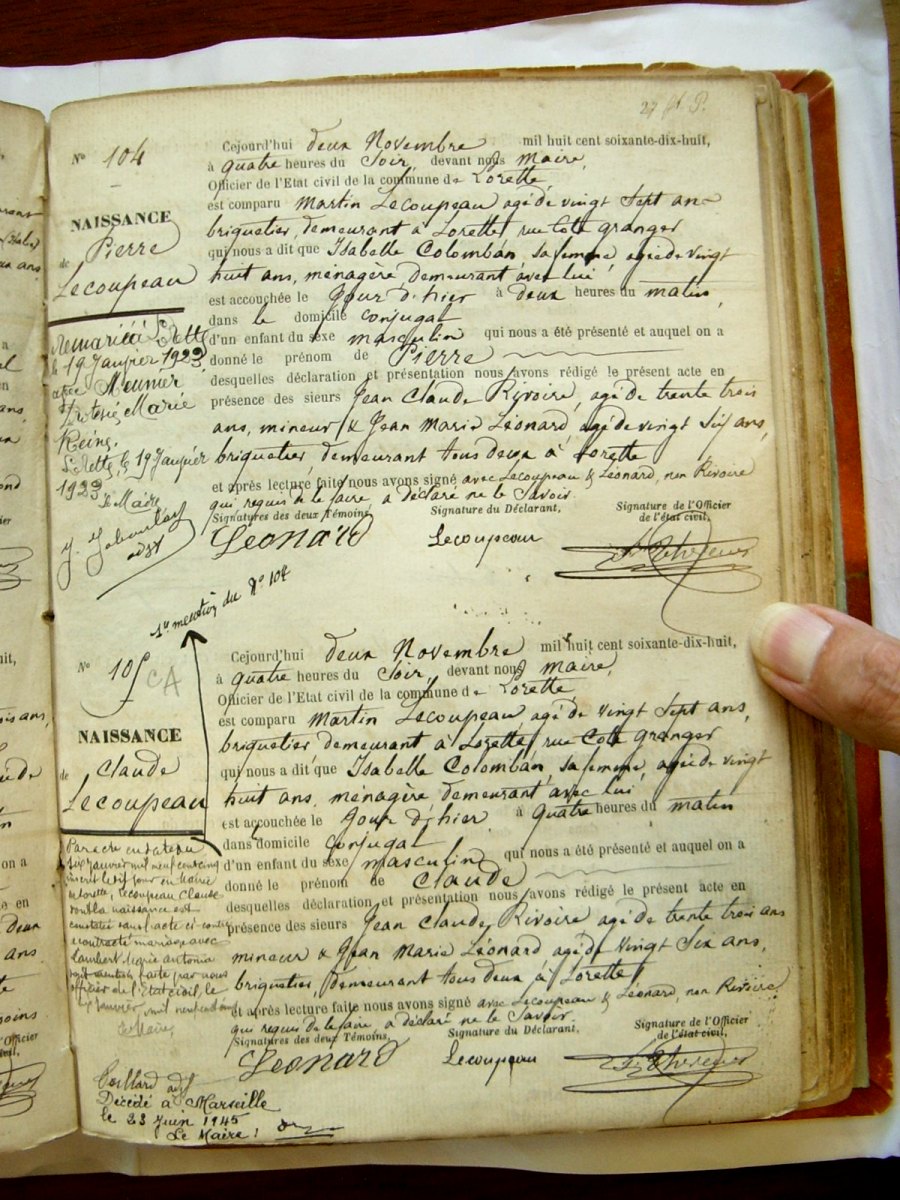 27
N° 104
NAISSANCE
de Pierre
Lecoupeau
Remarié à Lorette
le 19 Janvier 1923
avec Meunier
Marie
Reine.
Lorette, le 19 Janvier
1923
Le Maire
adjt
Cejourd'hui deux Novembre mil huit cent soixante-dix-huit,
à quatre heures du Soir, devant nous maire,
Officier de l'Etat civil de la commune de Lorette
est comparu Martin Lecoupeau agé de vingt Sept ans
briquetier, demeurant à Lorette, rue Côte granger
qui nous a dit que Isabelle Colomban, sa femme, agée de vingt
huit ans, ménagère demeurant avec lui,
est accouchée le Jour d'hier à deux heures du matin,
dans le domicile conjugal
d'un enfant du sexe masculin qui nous a été présenté et auquel on a
donné le prénom de Pierre
desquelles déclaration et présentation nous avons rédigé le présent acte en
présence des sieurs Jean Claude Rivoire, agé de trente trois
ans, mineur & Jean Marie Léonard, agé de vingt Six ans,
briquetier demeurant tous deux à Lorette
et après lecture faite nous avons signé avec Lecoupeau & Léonard, non Rivoire
qui requis de le faire, a déclaré ne le Savoir.
Signatures des deux Témoins, Signature du Déclarant, Signature de l'Officier
de l'état civil,
Leonard Lecoupeau
1re mention du N° 104
N° 105
CA
NAISSANCE
de Claude
Lecoupeau
Par acte en date du
six Janvier mil neuf cent cinq
inscrit le dit jour en Mairie
de Lorette, Lecoupeau Claude
dont la naissance est
constatée dans l'acte ci-contre
a contracté mariage avec
Lambert Marie Antonia
dont mention faite par nous
officier de l'Etat civil, le
six Janvier mil neuf cent cinq
Le Maire,
adjt
Décédé à Marseille
le 23 Juin 1945
Le Maire :
Cejourd'hui deux Novembre mil huit cent soixante-dix-huit,
à quatre heures du Soir, devant nous maire,
Officier de l'Etat civil de la commune de Lorette
est comparu Martin Lecoupeau, agé de vingt Sept ans,
briquetier demeurant à Lorette, rue Côte granger
qui nous a dit que Isabelle Colomban, sa femme, agée de vingt
huit ans, ménagère demeurant avec lui
est accouchée le Jour d'hier à quatre heures du matin
dans domicile conjugal
d'un enfant du sexe masculin qui nous a été présenté et auquel on a
donné le prénom de Claude
desquelles déclaration et présentation nous avons rédigé le présent acte en
présence des sieurs Jean Claude Rivoire agé de trente trois ans
mineur & Jean Marie Léonard agé de vingt Six ans,
briquetier, demeurant tous deux à Lorette
et après lecture faite nous avons signé avec Lecoupeau & Léonard, non Rivoire
qui requis de le faire, a déclaré ne le Savoir.
Signatures des deux Témoins, Signature du Déclarant, Signature de l'Officier
de l'état civil,
Leonard Lecoupeau